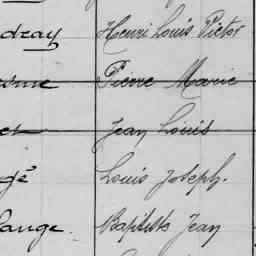 dray Henri Louis Victor
Pierre Marie
Jean Louis
gé Louis Joseph.
lange. Baptiste Jean